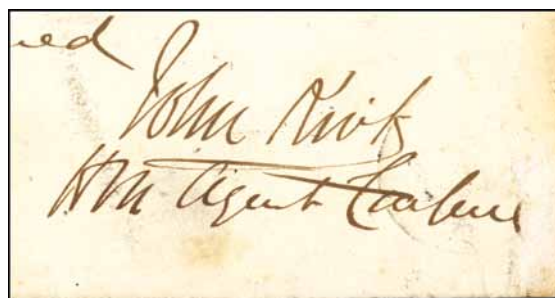 ed
John Kirk
HM Agent